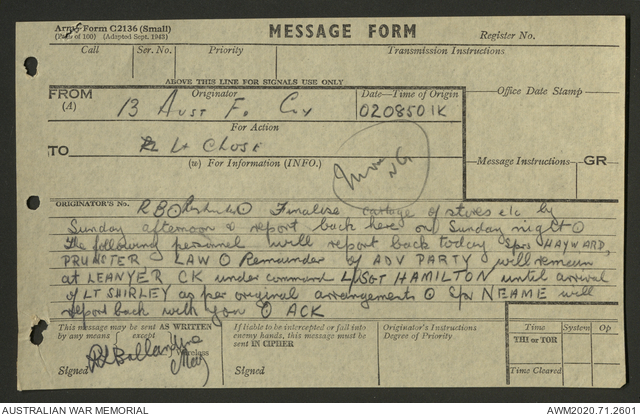 Army Form C2136 (Small)
(Pads of 100) (Adapted Sept. 1943)
MESSAGE FORM
Register No.
Call Ser. No. Priority Transmission Instructions
ABOVE THIS LINE FOR SIGNALS USE ONLY
FROM (A) Originator Date—Time of Origin Office Date Stamp
13 Aust F. Coy 020850 IK
For Action
TO Lt CLOSE
(w) For Information (INFO.)
Message Instructions GR
ORIGINATOR'S No. RBO Finalise cartage of stores etc by
Sunday afternoon & report back here on Sunday night O
The following personnel will report back today Sprs HAYWARD,
LAW O Remainder of ADV PARTY will remain
at LEANYER CK under command L/SGT HAMILTON until arrival
of LT SHIRLEY as per original arrangements O Spr NEAME will
report back with you O ACK
This message may be sent AS WRITTEN
by any means except Wireless
Signed
If liable to be intercepted or fall into
enemy hands, this message must be
sent IN CIPHER
Signed
Originator's Instructions
Degree of Priority
Time System Op
THI or TOR
Time Cleared
AUSTRALIAN WAR MEMORIAL
AWM2020.71.2601